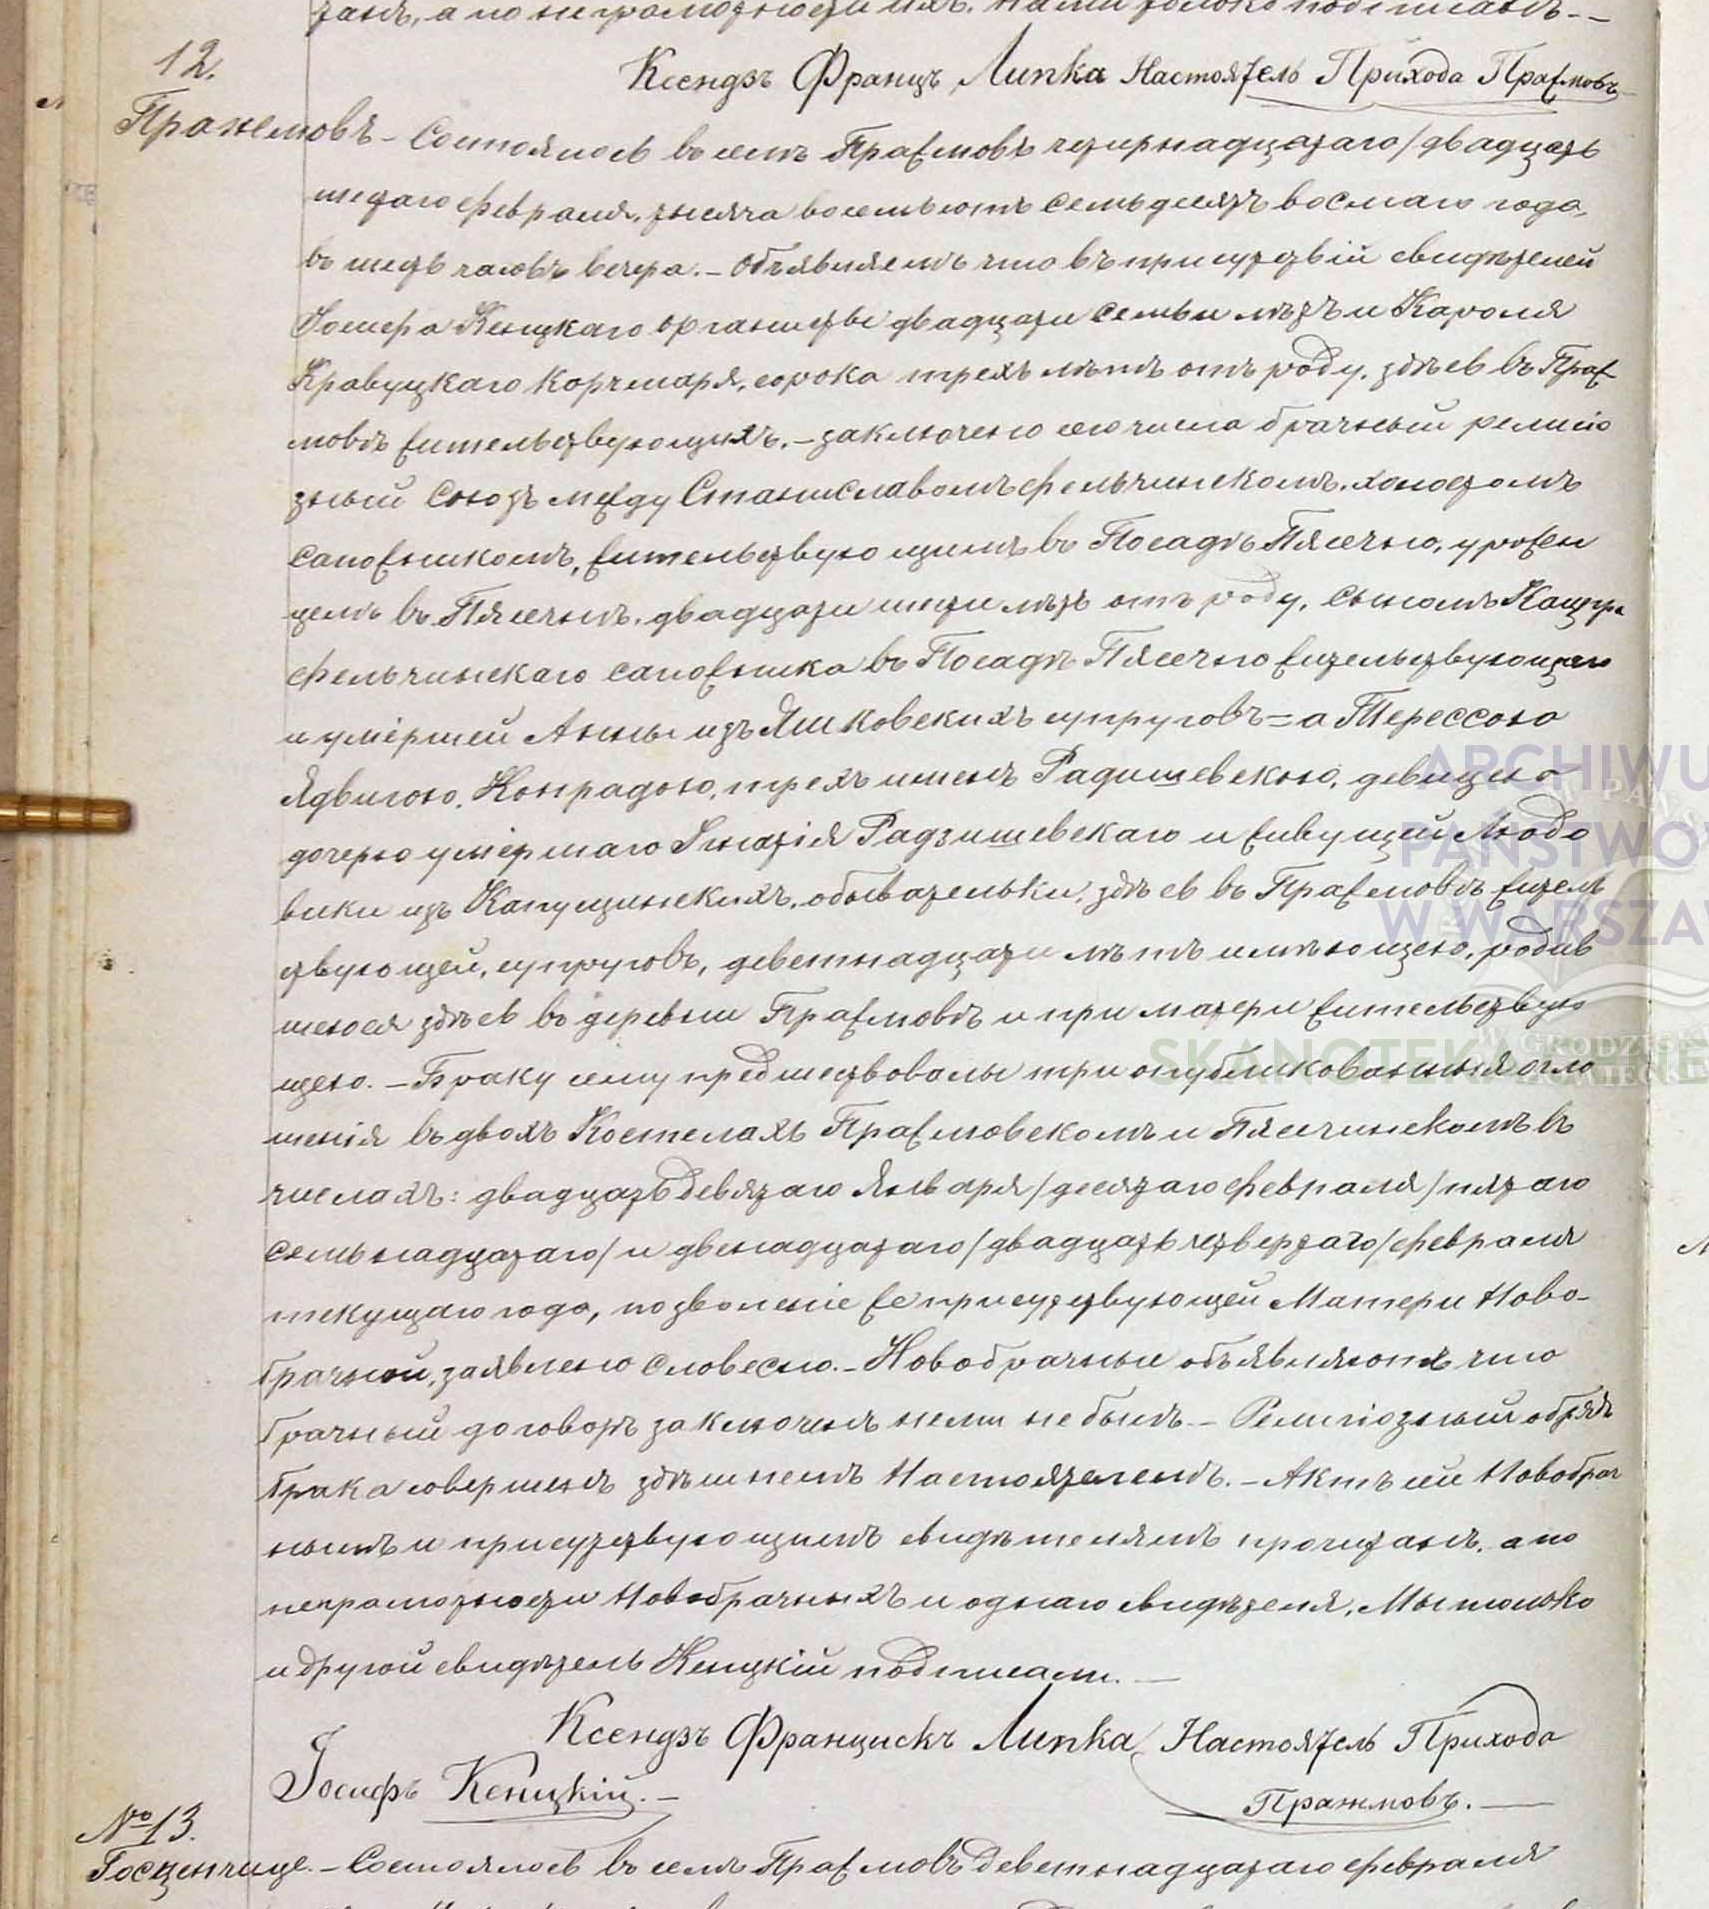 12.
Ксендзъ Францъ Липка Настоятель Прихода Пражмовъ
Пражмовъ – Состоялось въ селѣ Пражмовѣ четырнадцатаго /двадцать
шестаго февраля, тысяча восемьсотъ семьдесятъ восмаго года,
въ шесть часовъ вечера. – Объявляемъ что въ присутствій свидѣтелей
Іосифа Кеницкаго органисты двадцати семьи лѣтъ и Кароля
Кравуцкаго корчмаря, сорока трехъ лѣтъ отъ роду, здѣсь въ Праж
мовѣ жительствующихъ. – заключено сего числа брачный религіо
зный союзъ между Станиславомъ Фельчинскомъ, холостомъ
сапожникомъ, жительствующимъ въ Посадѣ Пясечно, урожен
цемъ въ Пясечнѣ, двадцати шести лѣтъ отъ роду, сыномъ
Фельчинскаго сапожника въ Посадѣ Пясечно жительствующаго
и умершей Анны изъ Яшковскихъ супруговъ = а Терессою
Ядвигою, Конрадою, трехъ именъ Радишевскою, девицею
дочерью умершаго Игнатія Радзишевскаго и живущей Людо
вики изъ Капущинскихъ, обывательки, здѣсь въ Пражмовѣ жител
ствующей, супруговъ, деветнадцати лѣтъ имѣющею, родив
шеюся здѣсь въ деревни Пражмовѣ и при матери жительствую
щею. – Браку сему предшествовалы три опубликованныя огло
шенія въ двохъ Костелахъ Пражмовскомъ и Пясечинскомъ въ
числахъ: двадцать девятаго Января /десятаго февраля/ пятаго
семьнадцатаго/ и двенадцатаго /двадцать четвертаго/ февраля
текущаго года, позволеніе же присутствующей Матери Ново-
брачной, заявлено словесно. – Новобрачные объявляютъ что
брачный договоръ заключенъ неми не былъ. – Религіозный обрядъ
брака совершенъ здѣшнемъ Настоятелемъ. – Актъ сей Новобрач
нымъ и присутствующимъ свидѣтелямъ прочитанъ, а по
неграмотности Новобрачныхъ и однаго свидѣтеля, Мы только
и другой свидѣтель Кеницкій подписали. –
Ксендзъ Францискъ Липка Настоятель Прихода
Іосифъ Кеницкій. –
Пражмовъ. –
№ 13.
Госценчице. – Состоялось въ селѣ Пражмовѣ деветнадцатаго февраля
ARCHIWU
PAŃSTWO
W WARSZA
SKANOTEKA